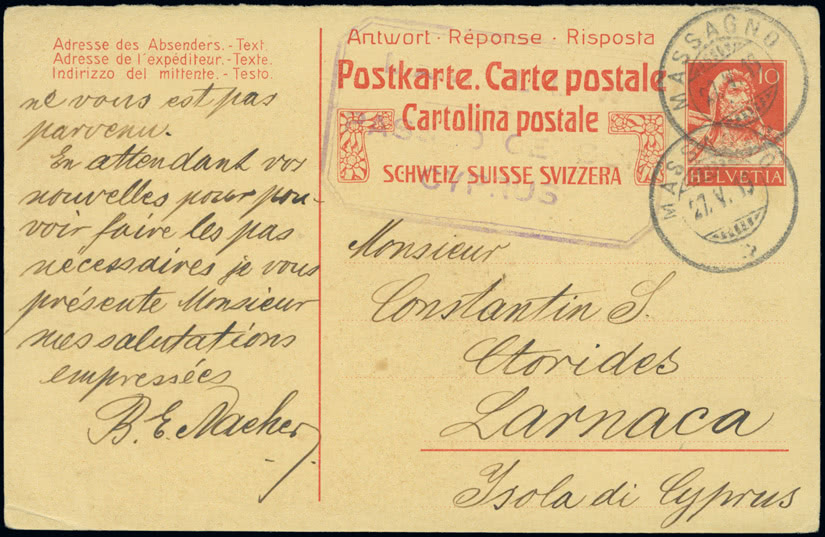 Adresse des Absenders.-Text.
Adresse de l'expéditeur.-Texte.
Indirizzo del mittente.-Testo.
ne vous est pas
parvenu.
En attendant vos
nouvelles pour pou-
voir faire les pas
nécessaires je vous
présente Monsieur
mes salutations
empressées
B. E. Macher
Antwort · Réponse · Risposta
Postkarte. Carte postale
Cartolina postale
SCHWEIZ SUISSE SVIZZERA
CYPRUS
MASSAGNO
10
HELVETIA
27. V. 19
Monsieur
Constantin S.
Ctorides
Larnaca
Isola di Cyprus